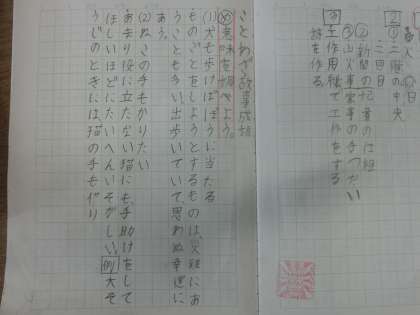 一日目
①二際の中央
二日目
②新聞の記者のは組
③山火事実事の手つだい
工作用紙で工作をする
詩を作る。
ことわざ故事成語
意味を調べよう。
(1)犬も歩けばぼうに当たる
ものごとをしようとするものは、災難にあ
うことも多い出歩いていて、思わぬ幸運に
あう。
(2)ねこの手もかりたい
あまり役に立たない猫にも、手助けをして
ほしいほどにたいへんいそがしい。例大そ
うじのときには、猫の手も代り